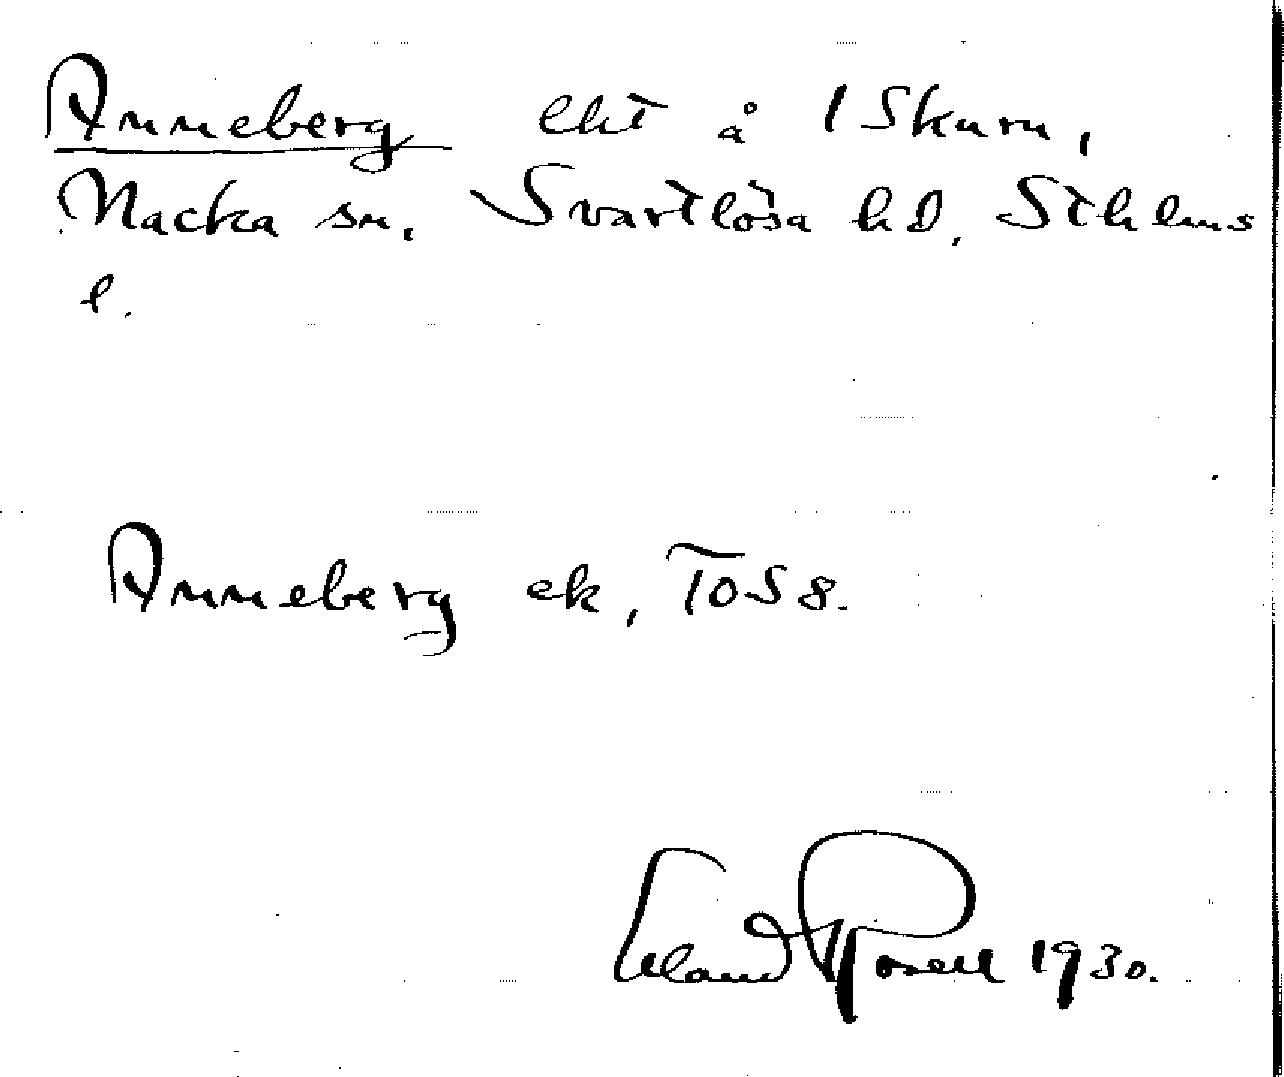 Anneberg lht å 1 Skuru,
Nacka sn. Svartlösa hd. Sthlms
l.
Anneberg ek, TOS 8.
Erland Rosell 1930.